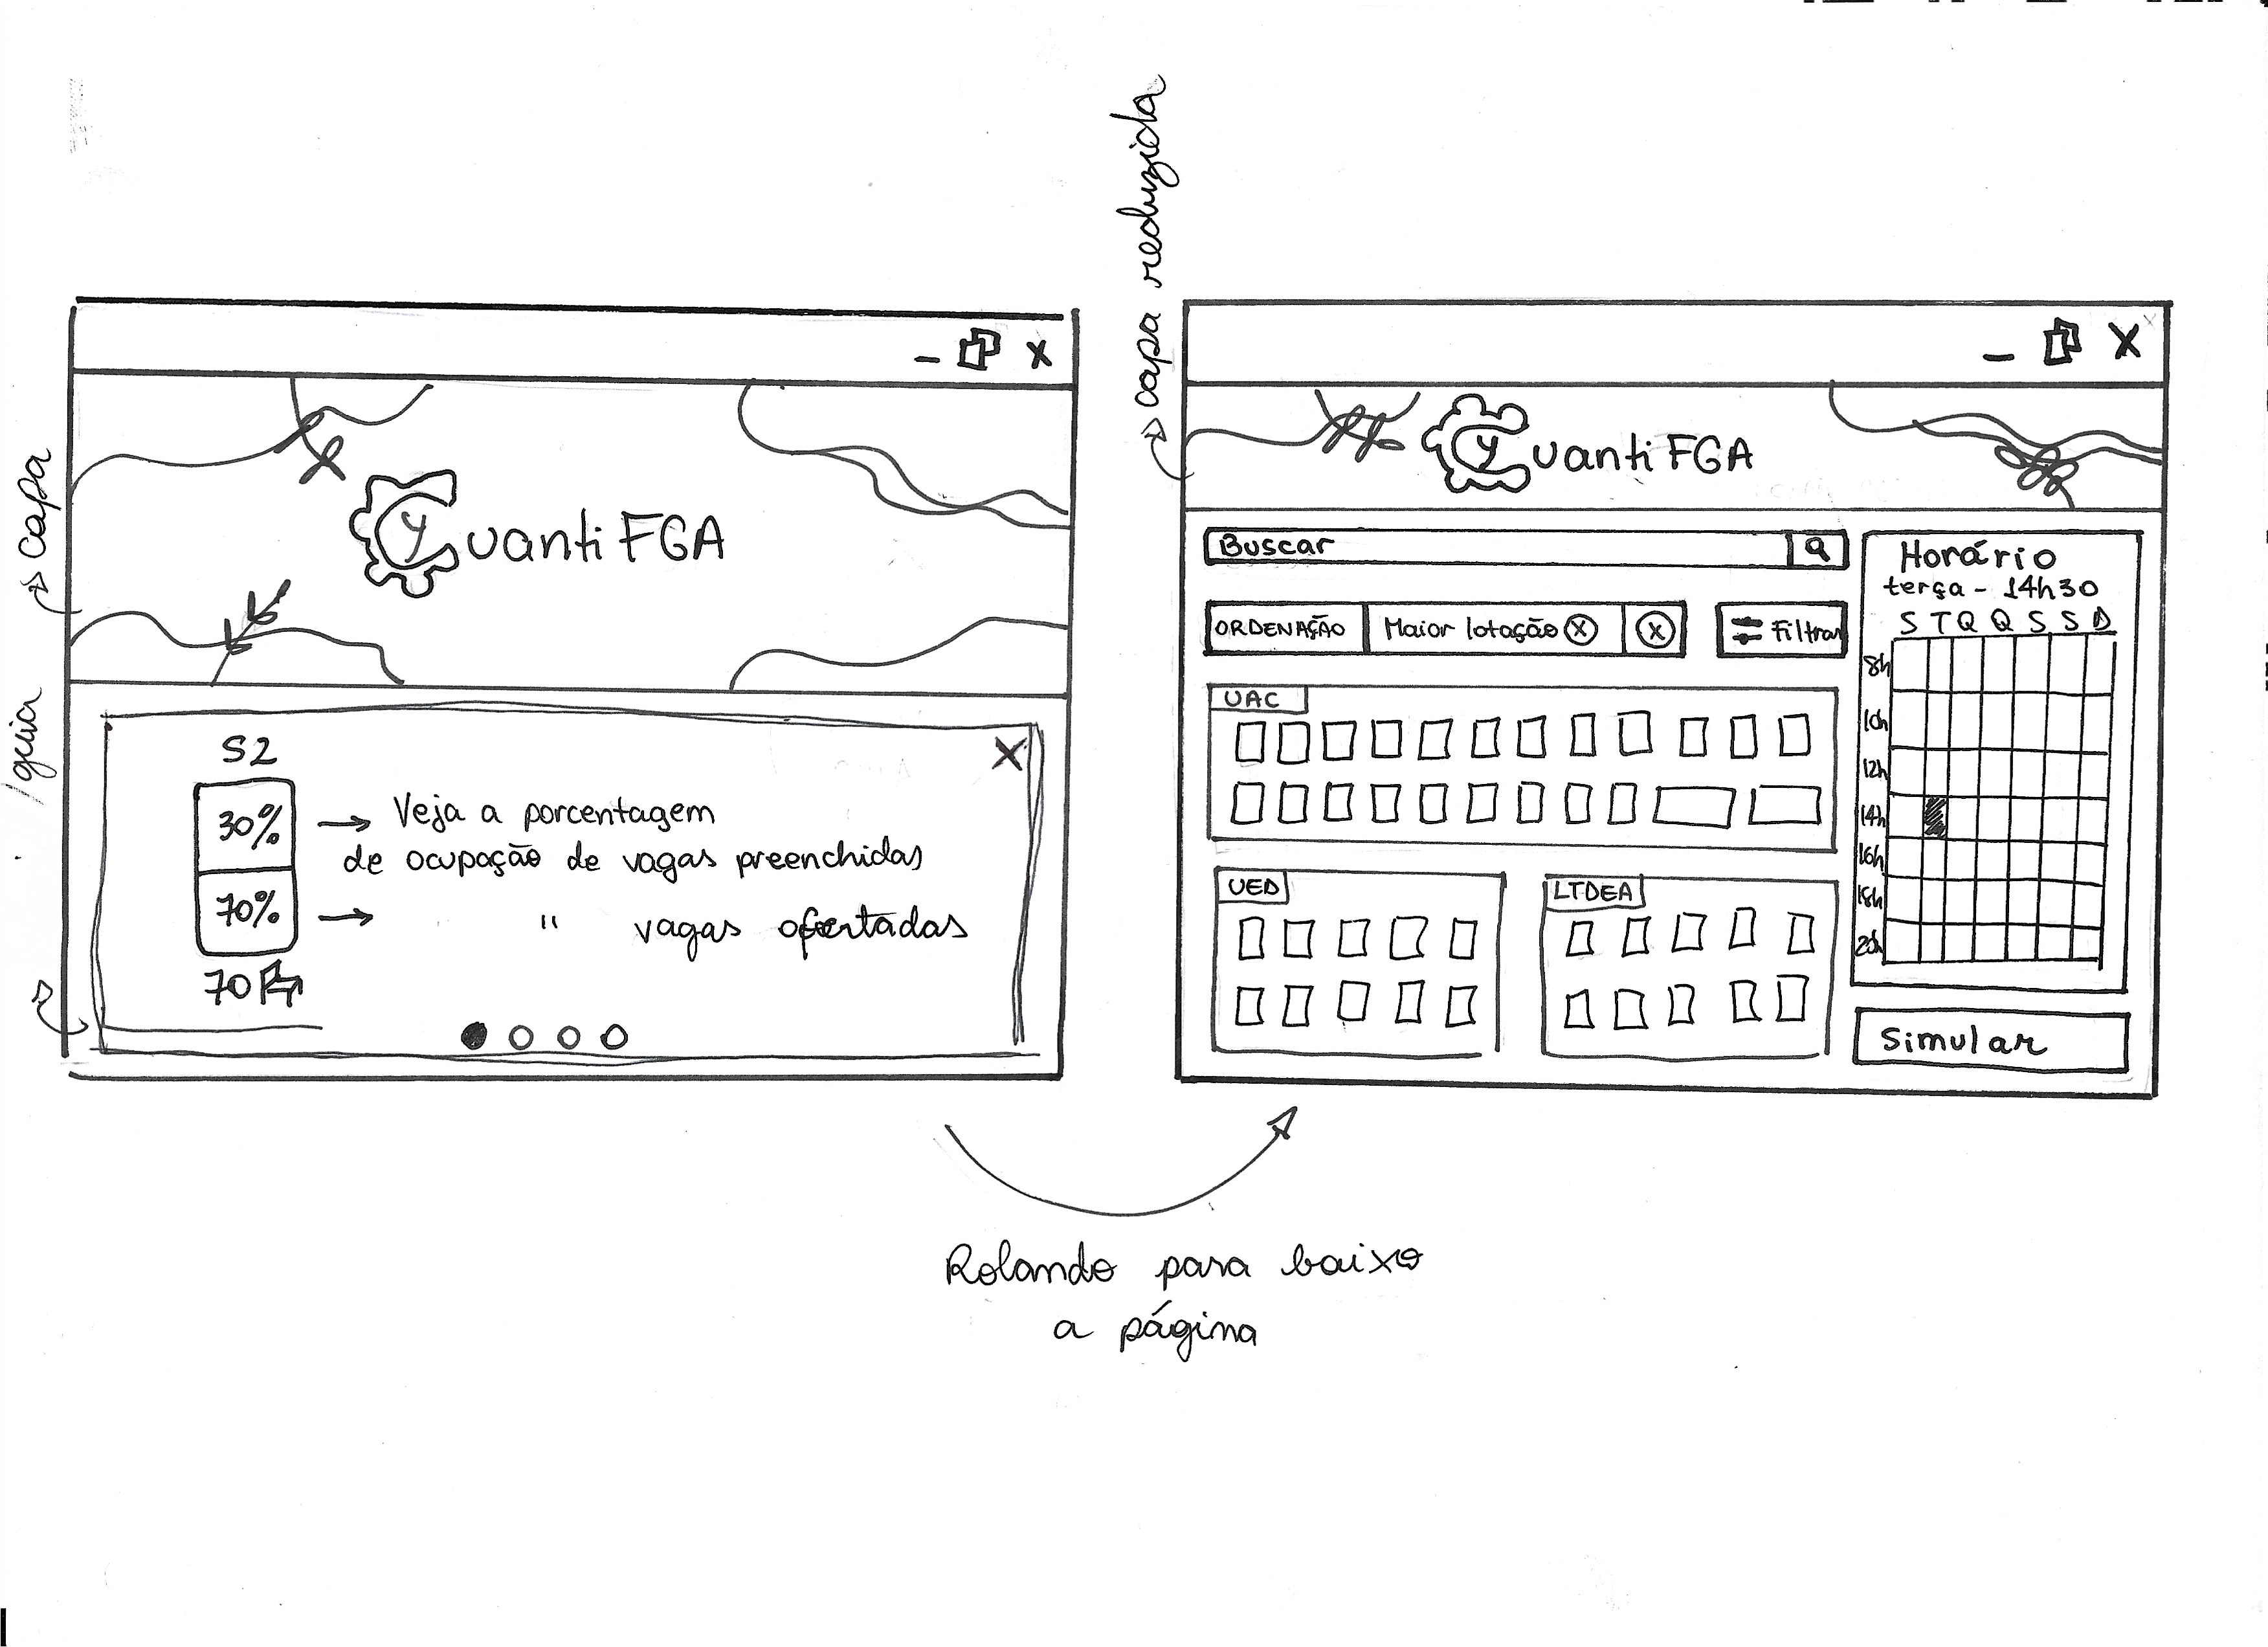 capa
guia
CyuantiFGA
X
S2
30%
Veja a porcentagem
de ocupação de vagas preenchidas
70%
" vagas ofertadas
70
capa reduzida
X
CyuantiFGA
Buscar
ORDENAÇÃO
Maior lotação
Filtrar
UAC
UED
LTDEA
Horário
terça - 14h30
S T Q Q S S D
8h
10h
12h
14h
16h
18h
20h
Simular
Rolando para baixo
a página